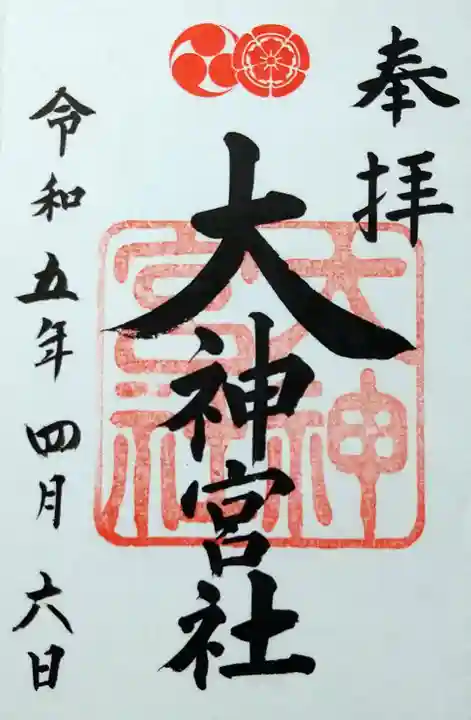 奉拝
大神宮社
大神宮社
令和五年四月六日